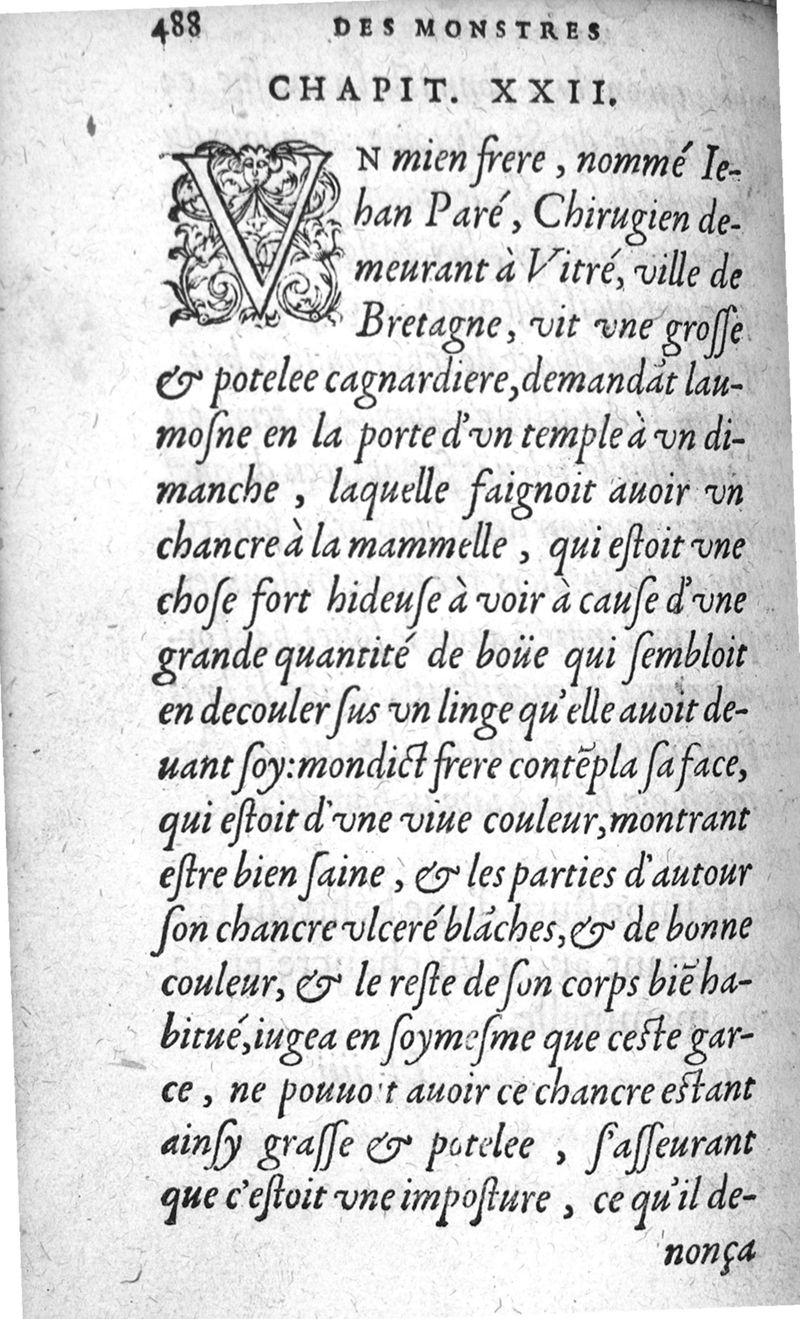 488 DES MONSTRES
CHAPIT. XXII.
VN mien frere, nommé Ie-
han Paré, Chirugien de-
meurant à Vitré, ville de
Bretagne, vit vne groſſe
& potelee cagnardiere, demandãt lau-
moſne en la porte d'vn temple à vn di-
manche, laquelle faignoit auoir vn
chancre à la mammelle, qui eſtoit vne
choſe fort hideuſe à voir à cauſe d'vne
grande quantité de boüe qui ſembloit
en decouler ſus vn linge qu'elle auoit de-
uant ſoy: mondict frere contẽpla ſa face,
qui eſtoit d'vne viue couleur, montrant
eſtre bien ſaine, & les parties d'autour
ſon chancre vlceré blãches, & de bonne
couleur, & le reſte de ſon corps biẽ ha-
bitué, iugea en ſoymeſme que ceſte gar-
ce, ne pouuoit auoir ce chancre eſtant
ainſy graſſe & potelee, ſ'aſſeurant
que c'eſtoit vne impoſture, ce qu'il de-
nonça